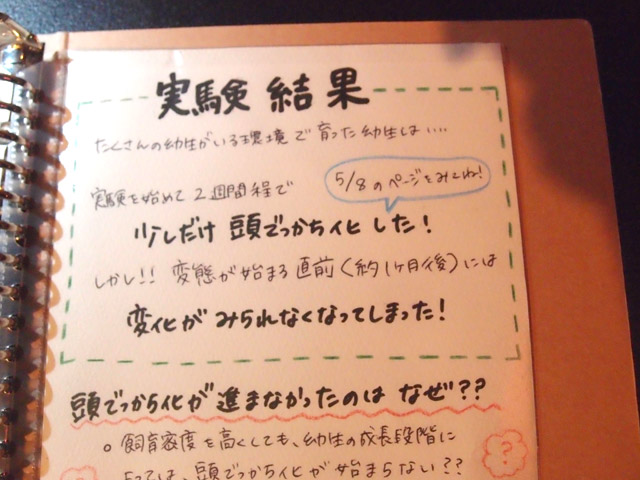 実験結果
たくさんの幼生がいる環境で育った幼生は....
実験を始めて2週間程で
5/8のページをみてね!
少しだけ頭でっかち化した!
しかし!!変態が始まる直前(約1ヶ月後)には
変化がみられなくなってしまった!
頭でっかち化が進まなかったのはなぜ??
○飼育密度を高くしても、幼生の成長段階に
?
よっては、頭でっかち化が始まらない??